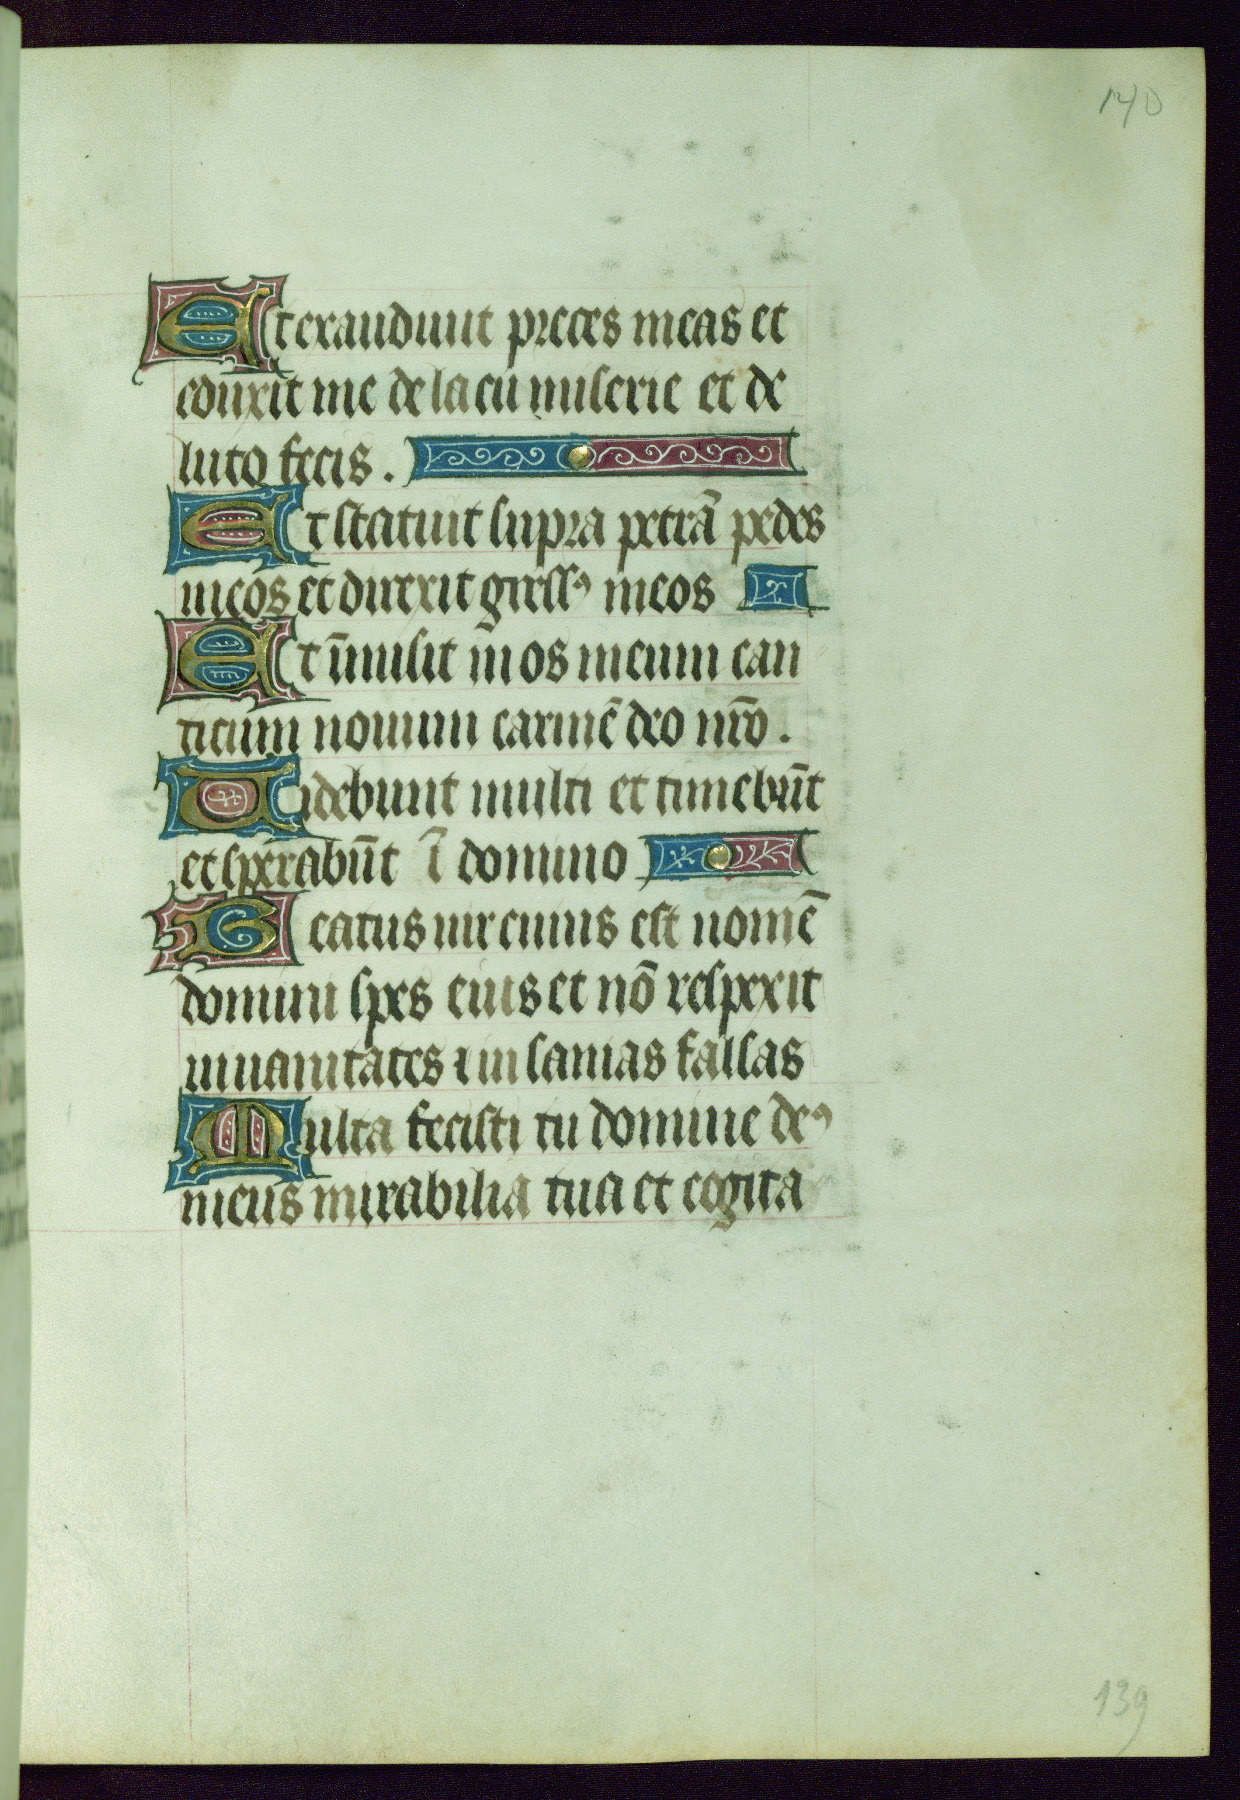 140
Et exaudiuit preces meas et
eduxit me de lacu miserie et de
luto fecis.
Et statuit supra petrā pedes
meos et direxit gressꝰ meos
Et īmisit in os meum can
ticum nouum carmē deo nr̄o.
Uidebunt multi et timebūt
et sperabūt ī domino
Beatus uir cuius est nomē
domini spes eius et nō respexit
in uanitates ⁊ in sanias falsas
Multa fecisti tu domine deꝰ
meus mirabilia tua et cogita
139